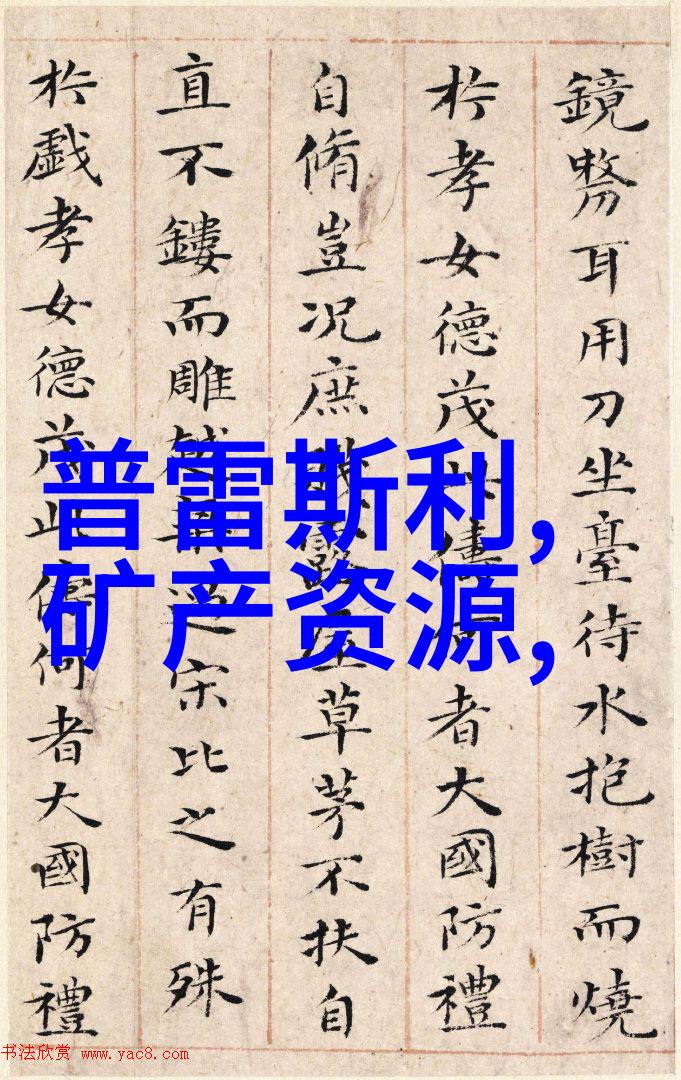 鏡剺耳用刀坐臺待水抱樹而燒
扵孝女德茂此儔者大國防禮
自脩豈况庶露草茅不扶自
直不鏤而雕越過宋比之有殊
扵戯孝女德茂此儔何者大國防禮
普雷斯利,
矿产资源,
书法欣赏 www.yac8.com